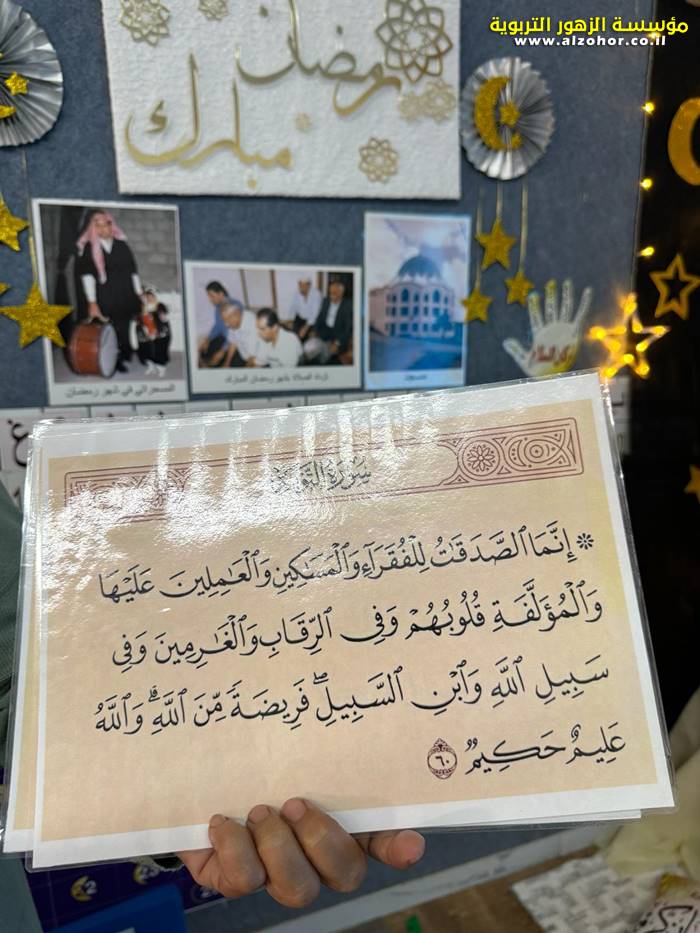 مؤسسة الزهور التربوية
www.alzohor.co.il
رمضان
مبارك
المسحراتي في شهر رمضان
مسجد
سُورَةُ التَّوْبَةِ
۞ إِنَّمَا ٱلصَّدَقَٰتُ لِلْفُقَرَآءِ وَٱلْمَسَٰكِينِ وَٱلْعَٰمِلِينَ عَلَيْهَا
وَٱلْمُؤَلَّفَةِ قُلُوبُهُمْ وَفِى ٱلرِّقَابِ وَٱلْغَٰرِمِينَ وَفِى
سَبِيلِ ٱللَّهِ وَٱبْنِ ٱلسَّبِيلِ ۖ فَرِيضَةً مِّنَ ٱللَّهِ ۗ وَٱللَّهُ
عَلِيمٌ حَكِيمٌ ٦٠